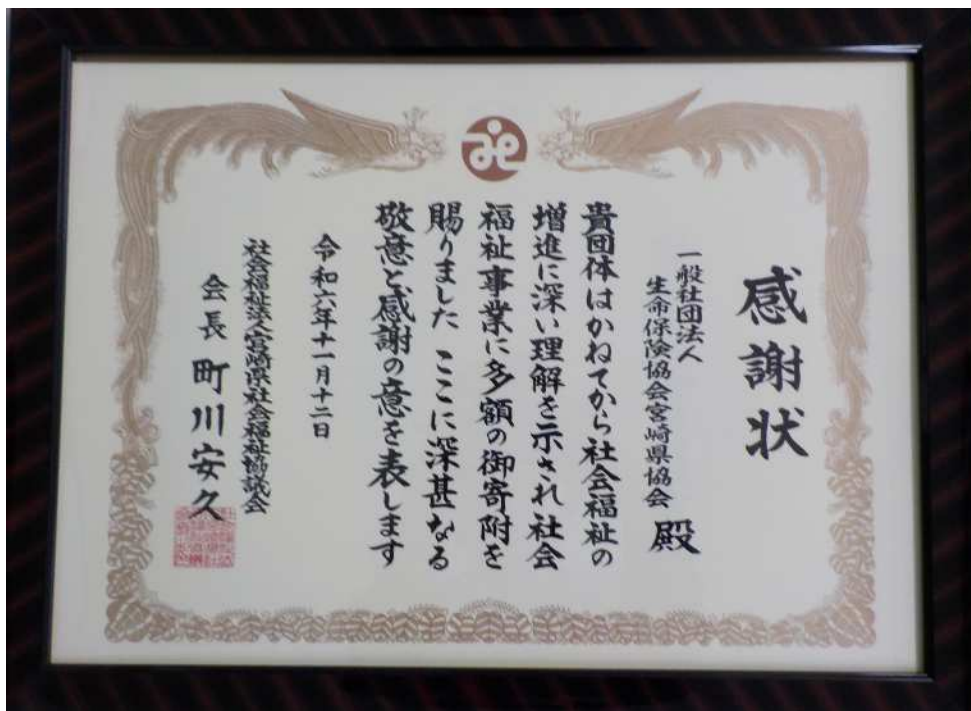 感謝状
一般社団法人
生命保険協会宮崎県協会 殿
貴団体はかねてから社会福祉の
増進に深い理解を示され社会
福祉事業に多額の御寄附を
賜りました ここに深甚なる
敬意と感謝の意を表します
令和六年十一月十二日
社会福祉法人宮崎県社会福祉協議会
会長 町川安久